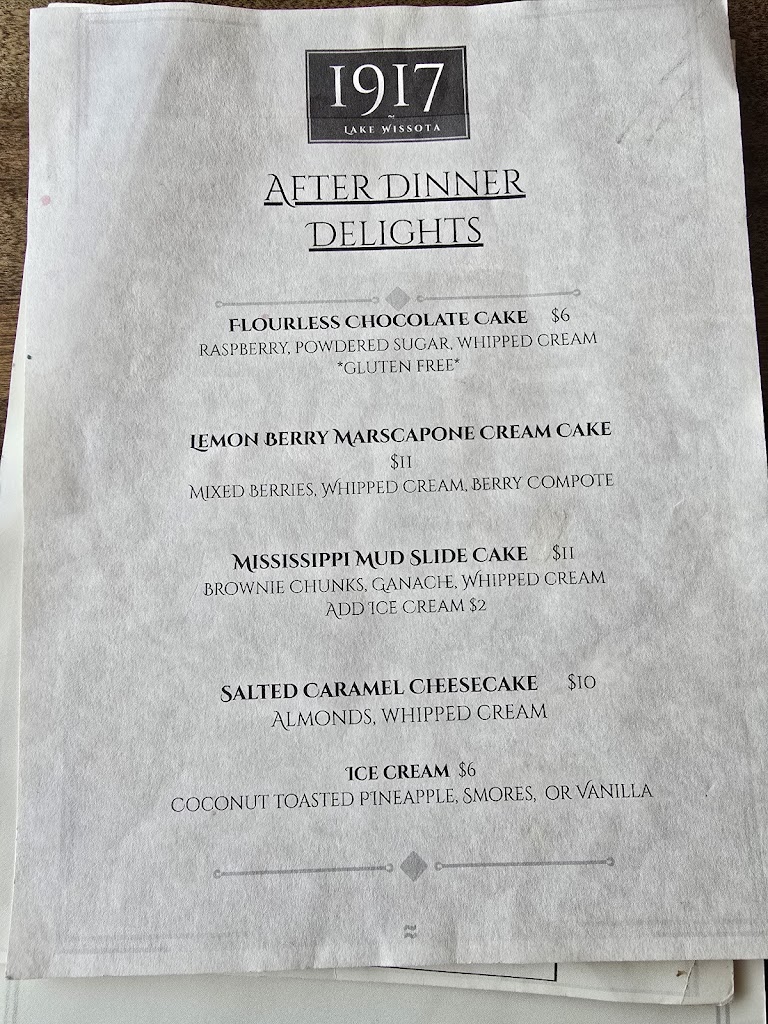 1917
~
LAKE WISSOTA
AFTER DINNER
DELIGHTS
FLOURLESS CHOCOLATE CAKE $6
RASPBERRY, POWDERED SUGAR, WHIPPED CREAM
*GLUTEN FREE*
LEMON BERRY MARSCAPONE CREAM CAKE
$11
MIXED BERRIES, WHIPPED CREAM, BERRY COMPOTE
MISSISSIPPI MUD SLIDE CAKE $11
BROWNIE CHUNKS, GANACHE, WHIPPED CREAM
ADD ICE CREAM $2
SALTED CARAMEL CHEESECAKE $10
ALMONDS, WHIPPED CREAM
ICE CREAM $6
COCONUT TOASTED PINEAPPLE, SMORES, OR VANILLA